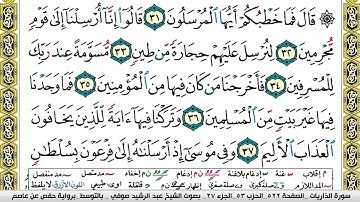 قَالَ فَمَا خَطۡبُكُمۡ أَيُّهَا ٱلۡمُرۡسَلُونَ ٣١ قَالُوٓاْ إِنَّآ أُرۡسِلۡنَآ إِلَىٰ قَوۡمٖ
مُّجۡرِمِينَ ٣٢ لِنُرۡسِلَ عَلَيۡهِمۡ حِجَارَةٗ مِّن طِينٖ ٣٣ مُّسَوَّمَةً عِندَ رَبِّكَ
لِلۡمُسۡرِفِينَ ٣٤ فَأَخۡرَجۡنَا مَن كَانَ فِيهَا مِنَ ٱلۡمُؤۡمِنِينَ ٣٥ فَمَا وَجَدۡنَا
فِيهَا غَيۡرَ بَيۡتٖ مِّنَ ٱلۡمُسۡلِمِينَ ٣٦ وَتَرَكۡنَا فِيهَآ ءَايَةٗ لِّلَّذِينَ يَخَافُونَ
ٱلۡعَذَابَ ٱلۡأَلِيمَ ٣٧ وَفِي مُوسَىٰٓ إِذۡ أَرۡسَلۡنَٰهُ إِلَىٰ فِرۡعَوۡنَ بِسُلۡطَٰنٖ
إقلاب إدغام بغنة إدغام إخفاء متصل منفصل
المد اللازم صلة كبرى صلة صغرى إظهار
سورة الذاريات الصفحة ٥٢٢ الحزب ٥٣ الجزء ٢٧ بصوت الشيخ عبد الرشيد صوفي بالتوسط برواية حفص عن عاصم